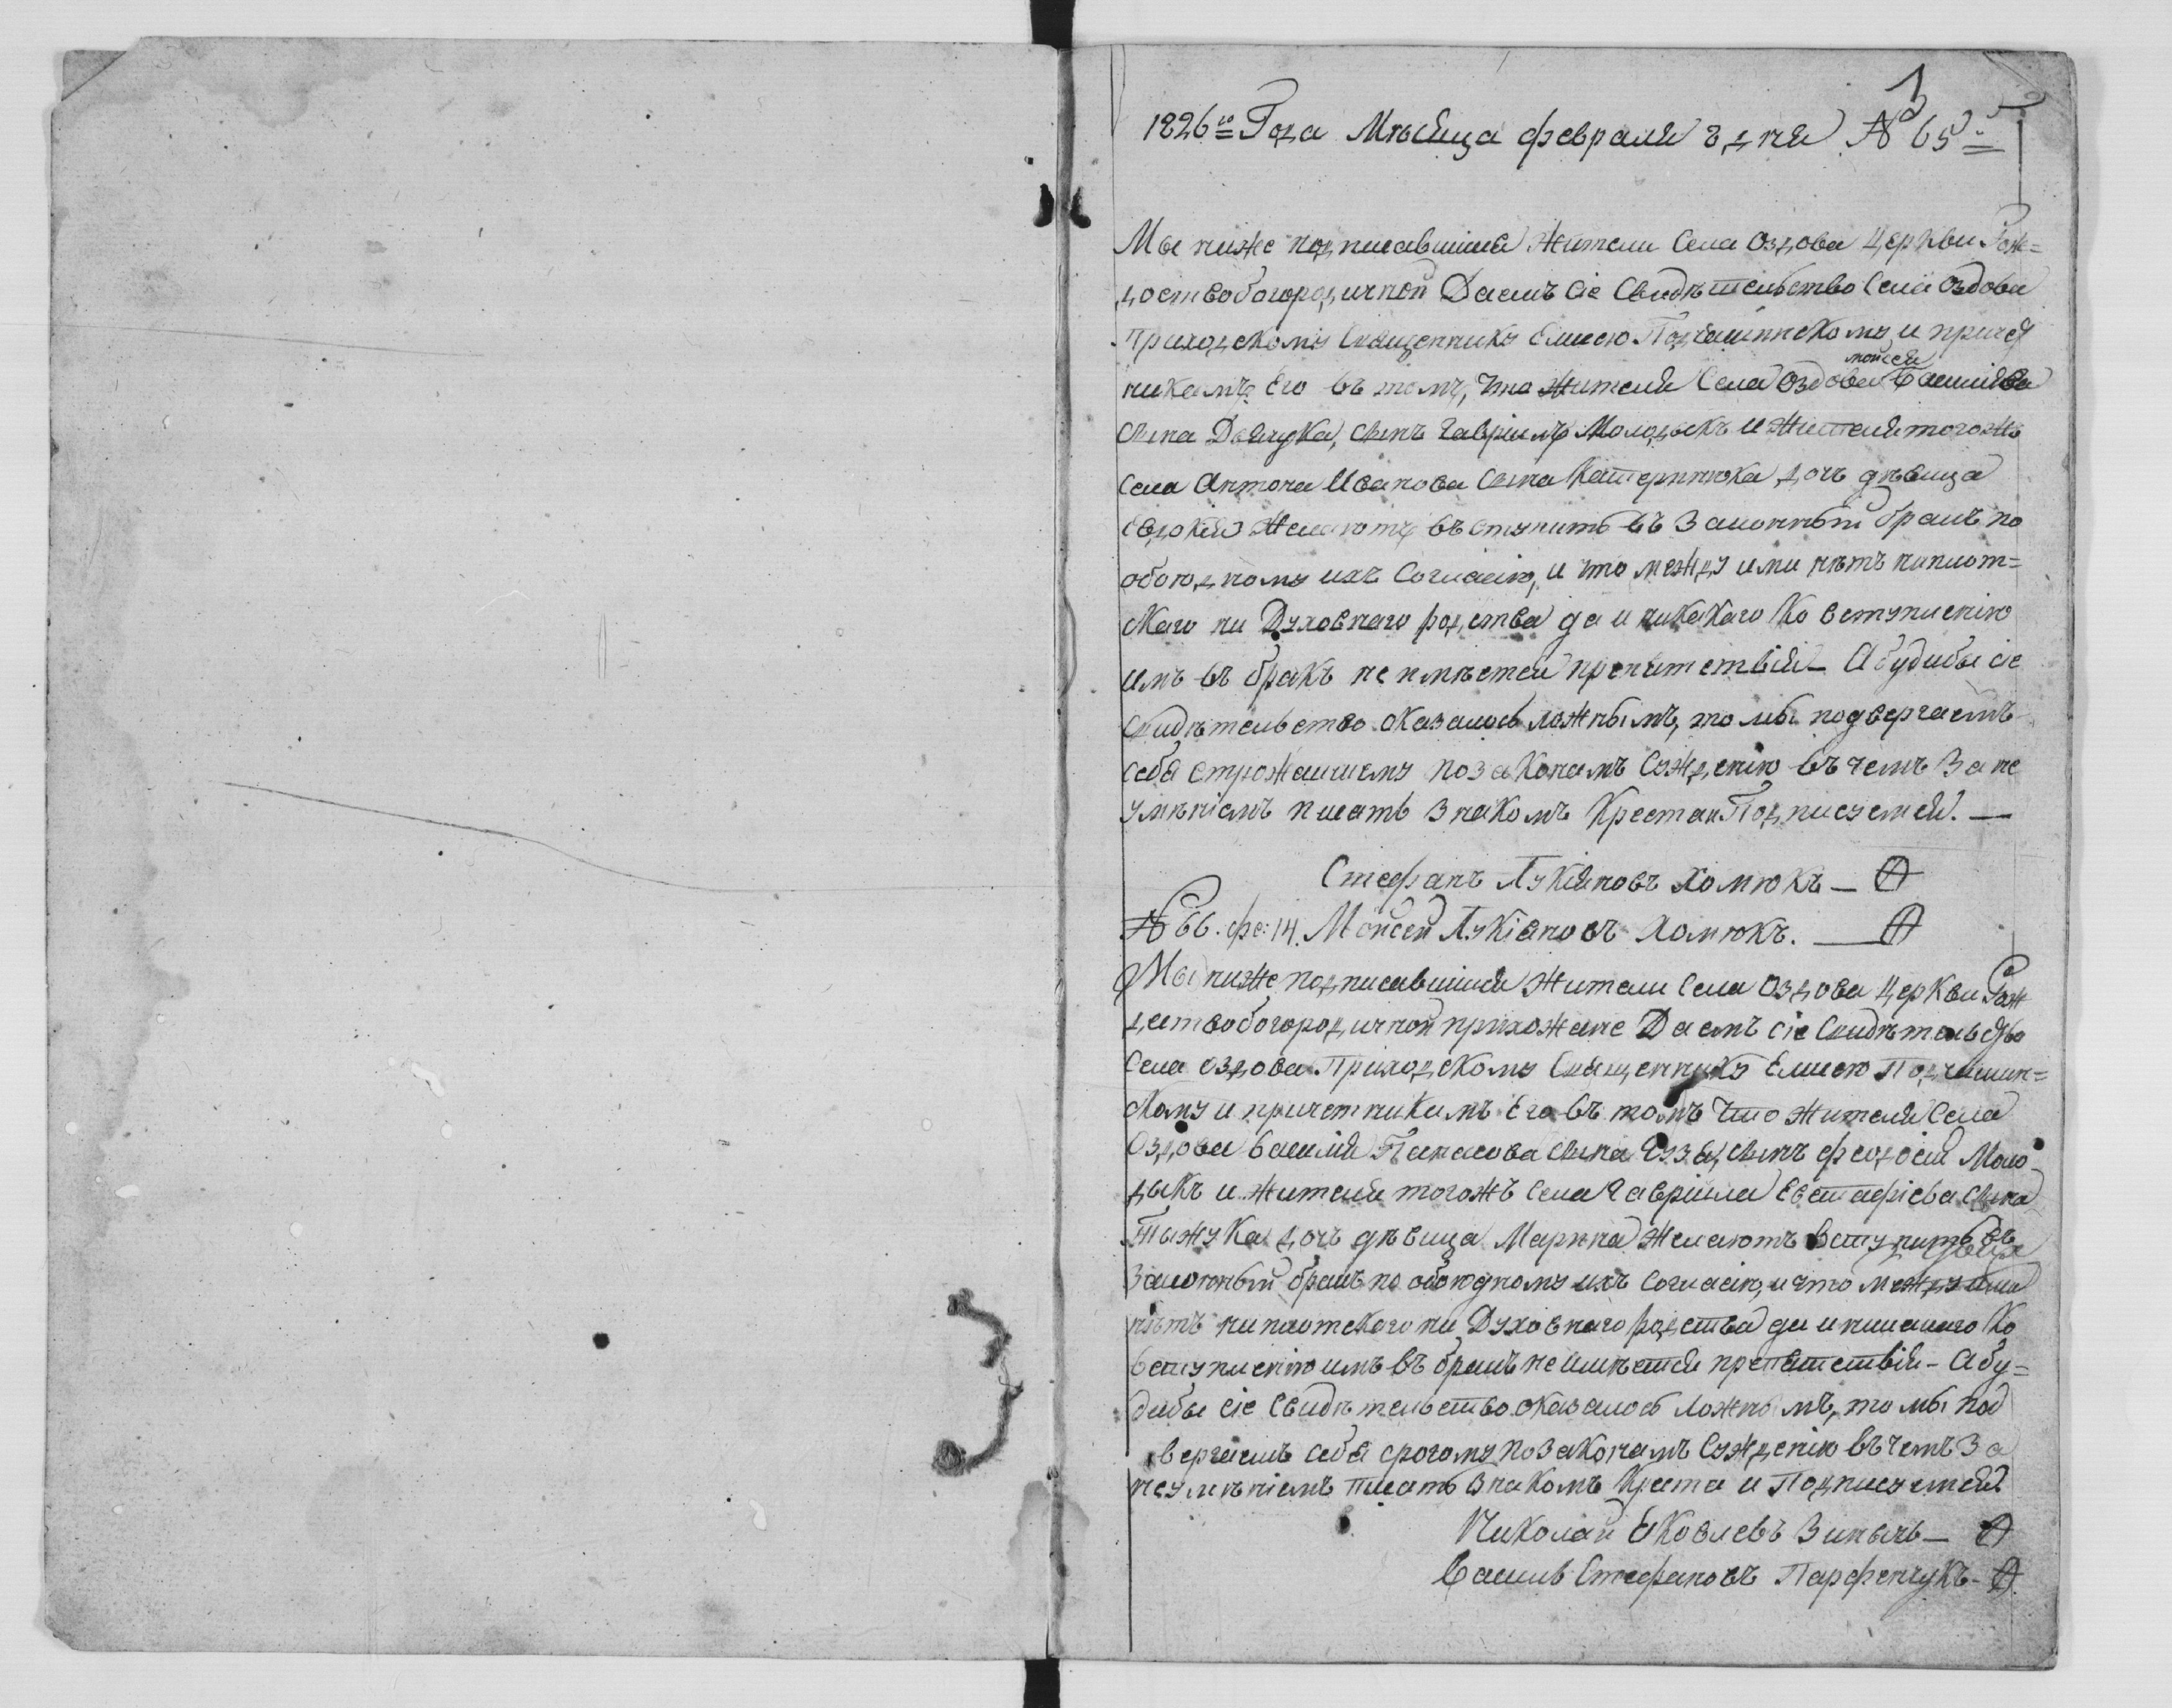 1
1826го Года Мѣсяца февраля 2 дня № 65й
Мы ниже подписавшіися жители села Оздова Церкви Рож=
дествобогородичной Даемъ сіе Свидѣтельство села Оздова
Приходскому Священнику Елисею Подчашинскому и причет
никамъ Его въ томъ, что жителя села Оздова Василіева
моисея
сына Дейчука, сынъ Гавріилъ Молодыкъ и жителя тогожъ
села Антона Иванова сына Катеринюка дочь дѣвица
Евдокія желаютъ въступить въ Законный бракъ по
обоюдному ихъ Согласію, и что между ими нѣтъ ниплот=
скаго ни Духовнаго родства да и никакаго ко вступленію
имъ въ бракъ не имѣется препятствія – А будибы сіе
свидѣтельство оказалось ложнымъ, то мы подвергаемъ
себя строжаишему по законамъ Сужденію въ чемъ За не
умѣніемъ писать знакомъ Креста и Подписуемся. —
Стефанъ Лукіяновъ Хомюкъ —
№ 66. фе: 14. Моисей Лукіановъ Хомюкъ. —
Мы ниже подписавшіися жители села Оздова Церкви Рож
дествобогородичной прихожане Даемъ сіе Свидѣтельство
села Оздова Приходскому Священнику Елисею Подчашин=
скому и причетникамъ Его въ томъ что жителя села
Оздова Василія Панасова сына Гузя, сынъ феодосій Моло
дыкъ и жителя тогожъ села Гавріила Евстафіева сына
Тыжука дочь дѣвица Марина желаютъ вступить въ
Законный бракъ по обоюдному ихъ согласію, и что между ими
нѣтъ ниплотскаго ни Духовнаго родства да и никакаго ко
вступленію имъ въ бракъ не имѣется препятствія – А бу=
дибы сіе свидѣтельство оказалось ложнымъ, то мы под
вергаемъ себя срогому по законамъ Сужденію въ чемъ За
неумѣніемъ писать знакомъ Креста и Подписуемся
Николай Яковлевъ Зинычъ —
Василь Стефановъ Парфенчукъ –